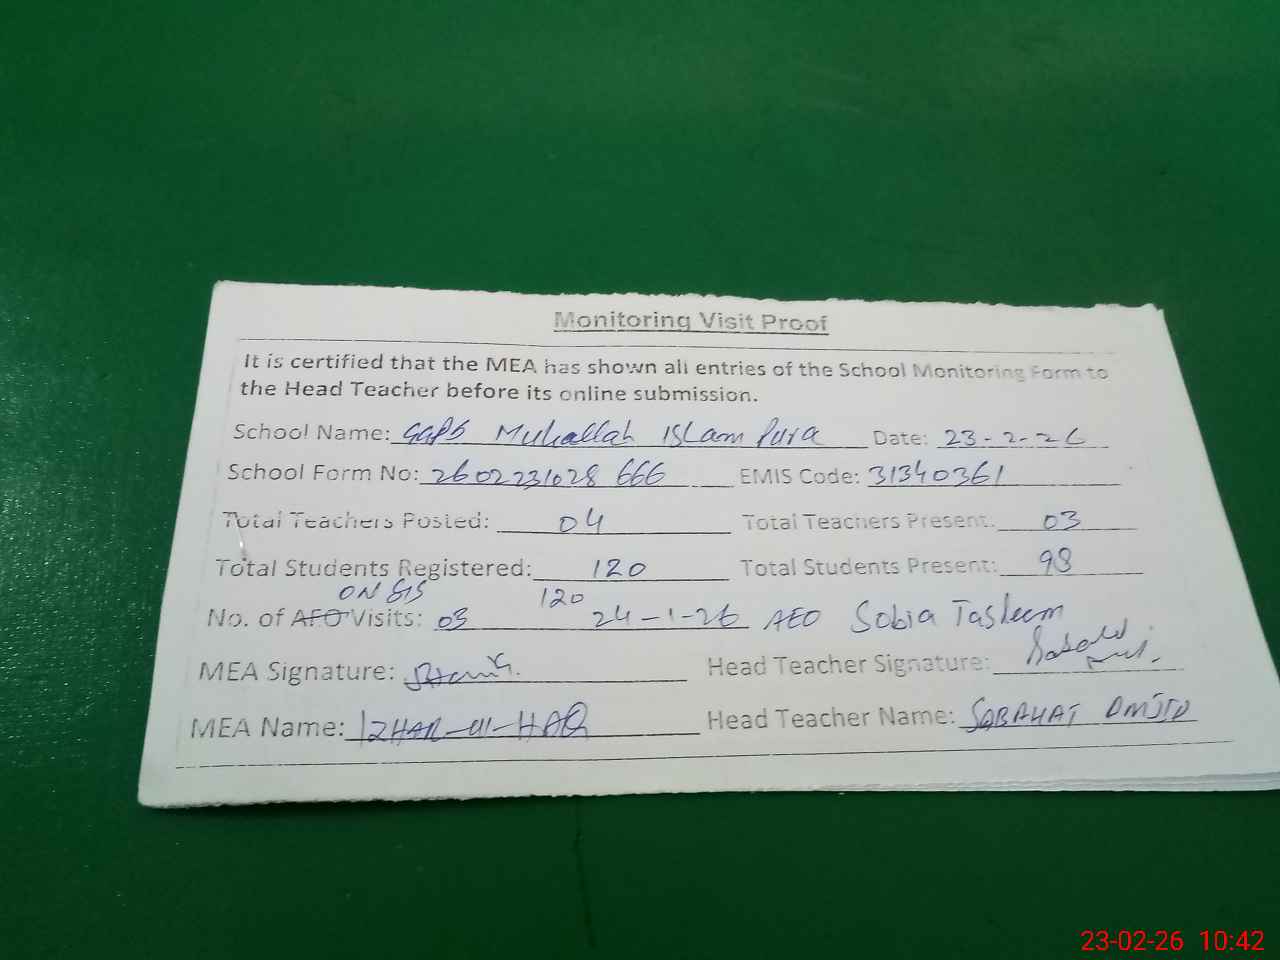 Monitoring Visit Proof
It is certified that the MEA has shown all entries of the School Monitoring Form to
the Head Teacher before its online submission.
School Name: GGPS Muhallah Islam Pura Date: 23-2-26
School Form No: 2602231028 666 EMIS Code: 31340361
Total Teachers Posted: 04 Total Teachers Present: 03
Total Students Registered: 120 Total Students Present: 98
ON SIS 120
No. of AEO Visits: 03 24-1-26 AEO Sobia Tasleem
MEA Signature: Head Teacher Signature:
MEA Name: IZHAR-UL-HAQ Head Teacher Name: SABAHAT
23-02-26 10:42